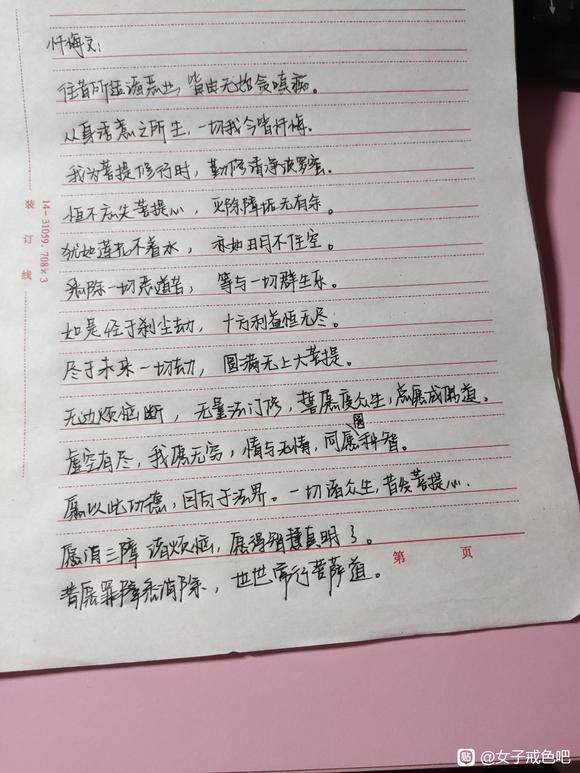 忏悔文：
往昔所造诸恶业，皆由无始贪嗔痴。
从身语意之所生，一切我今皆忏悔。
我为菩提修行时，勤修清净波罗蜜。
恒不忘失菩提心，灭除障垢无有余。
犹如莲花不着水，亦如日月不住空。
悉除一切恶道苦，等与一切群生乐。
如是经于刹尘劫，十方利益恒无尽。
尽于未来一切劫，圆满无上大菩提。
无边烦恼断，无量法门修，誓愿度众生，总愿成佛道。
虚空有尽，我愿无穷，情与无情，同愿圆种智。
愿以此功德，回向于法界。一切诸众生，皆发菩提心。
愿消三障诸烦恼，愿得智慧真明了。
普愿罪障悉消除，世世常行菩萨道。
装订线
14-31059.708×3
第 页
贴 @女子戒色吧